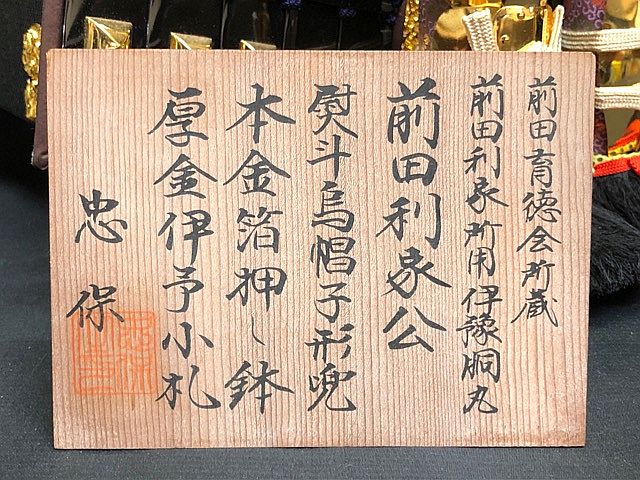 前田育徳会所蔵
前田利家所用伊豫胴丸
前田利家公
熨斗烏帽子形兜
本金箔押し鉢
厚金伊予小札
忠保